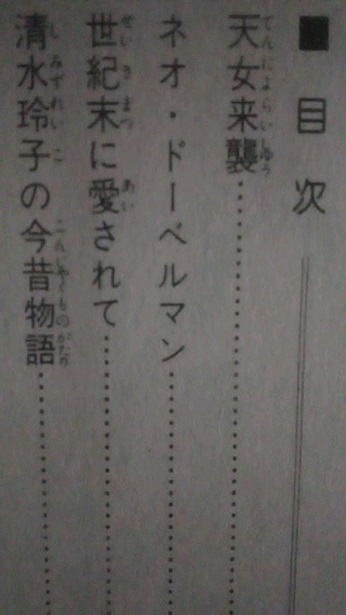 ■目次
天女来襲
てんにょらいしゅう
ネオ・ドーベルマン
世紀末に愛されて
せいきまつ あい
清水玲子の今昔物語
しみずれいこ こんじゃくものがたり